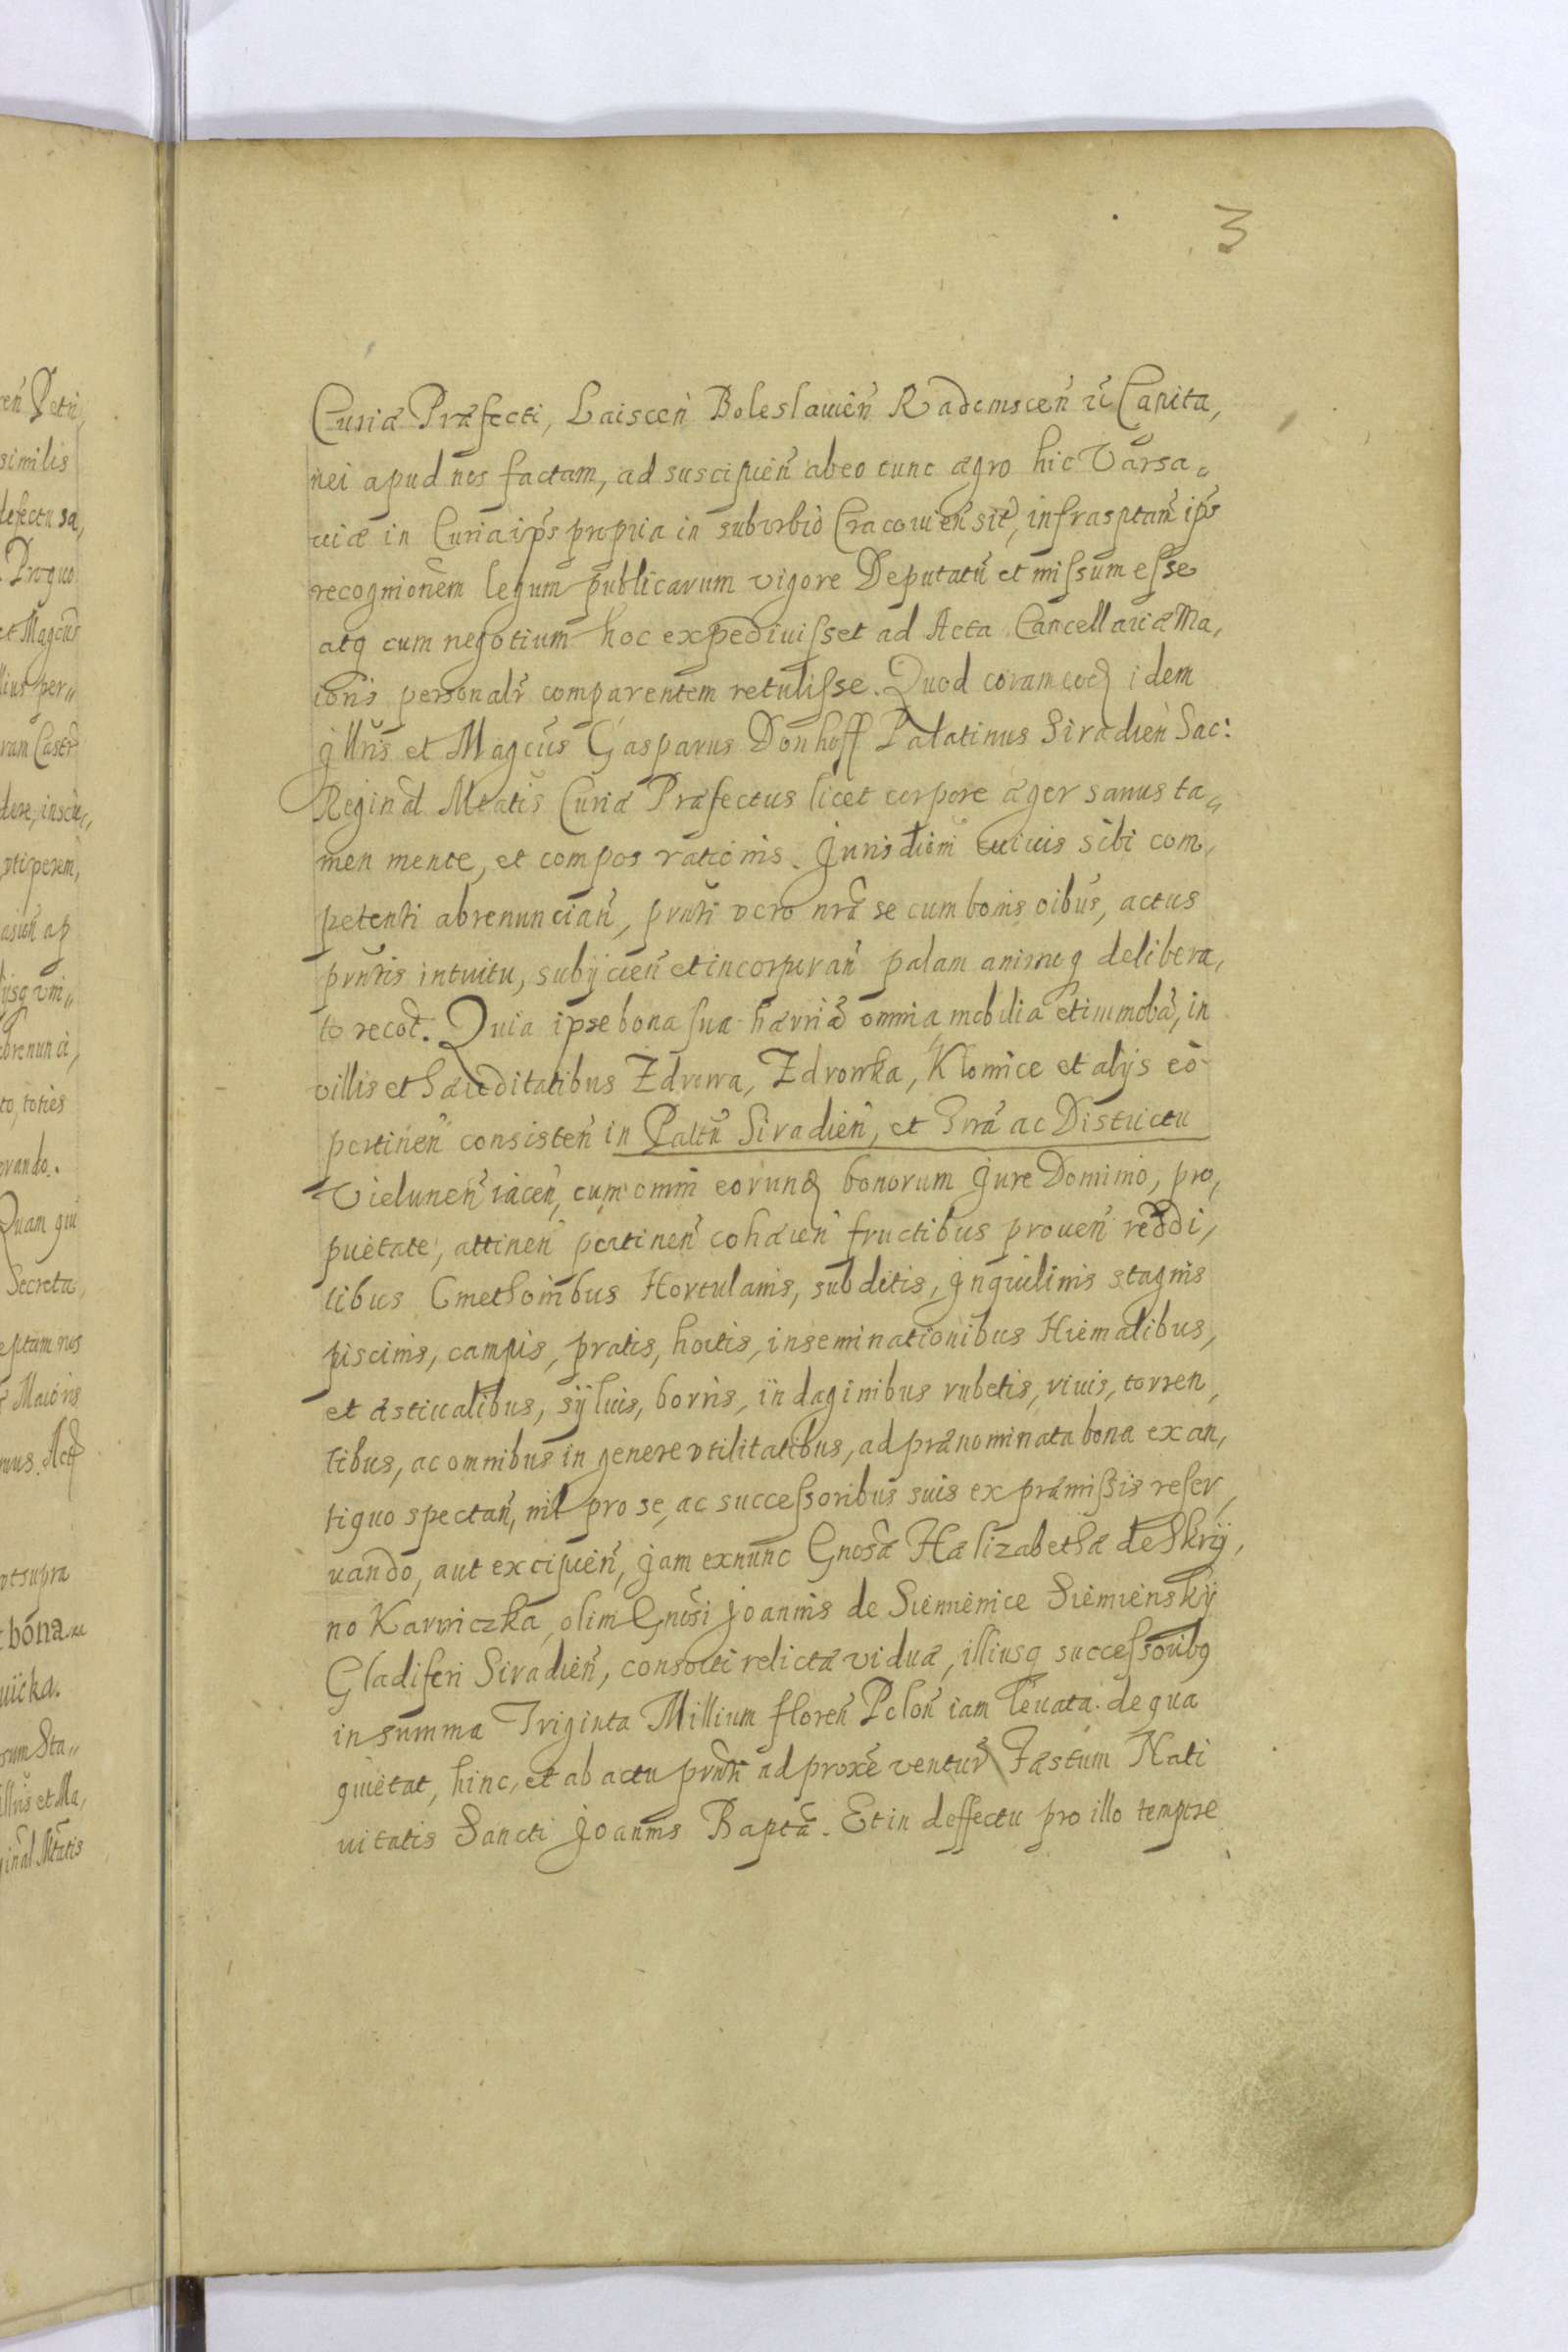 3
Curiæ Præfecti, Laiscen̄ Boleslauien̄ Radomscen̄ zc̄ Capita,
nei apud nos factam, ad suscipien̄ ab eo tunc ægro hic Varsa„
uiæ in Curia ip̄s propria in suburbio Cracouien̄ sit̄, infrasptan̄ ip̄s
recognionem̄ legum publicarum vigore Deputatū et missum esse
atq cum negotium hoc expediuisset ad Acta Cancellariæ Ma,
ioris personalr̄ comparentem retulisse. Quod coram eod idem
Jllris et Magcūs Gasparus Donhoff Palatinus Siradien̄ Sac:
Reginal Mtatis Curiæ Præfectus licet corpore æger sanus ta„
men mente, et compos rationis. Jurisdiōni cuiuis sibi com,
petenti abrenuncian̄, pn̄ti vero nrā se cum bonis oibus, actus
pn̄tis intuitu, subijcien̄ et incorporan̄ palam animoq delibera,
to recot̄. Quia ipse bona sua hærriā omnia mobilia et immobā, in
villis et hæreditatibus Zdrowa, Zdrowka, Klomice et alijs eo
pertinen̄ consisten̄ in Paltū Siradien̄, et Trrā ac Districtu
Vielunen̄ iacen̄, cum omni eorund bonorum Jure Dominio, pro,
prietate, attinen̄ pertinen̄ cohæren̄ fructibus prouen̄ reddi,
tibus Cmethonibus Hortulanis, subditis, Jnquilinis stagnis
piscinis, campis, pratis, hortis, inseminationibus Hiemalibus,
et æstiualibus, sÿluis, borris, indaginibus rubetis, riuis, torren,
tibus, ac omnibus in genere vtilitatibus, ad prænominata bona ex an,
tiquo spectan̄, nil pro se, ac successoribus suis ex præmissis reser,
uando, aut excipien̄, Jam exnunc Gnosæ Hælizabethæ de Skrzÿ,
no Karniczka, olim Gnosi Joannis de Siemienice Siemienskÿ
Gladiferi Siradien̄, consorti relictæ viduæ, illiusq successoribq
in summa Triginta Millium floren̄ Polon̄ iam leuata. de qua
quietat, hinc, et ab actu pn̄ti ad proxē ventur̄ Fæstum Nati
uitatis Sancti Joannis Baptæ. Et in deffectu pro illo tempore